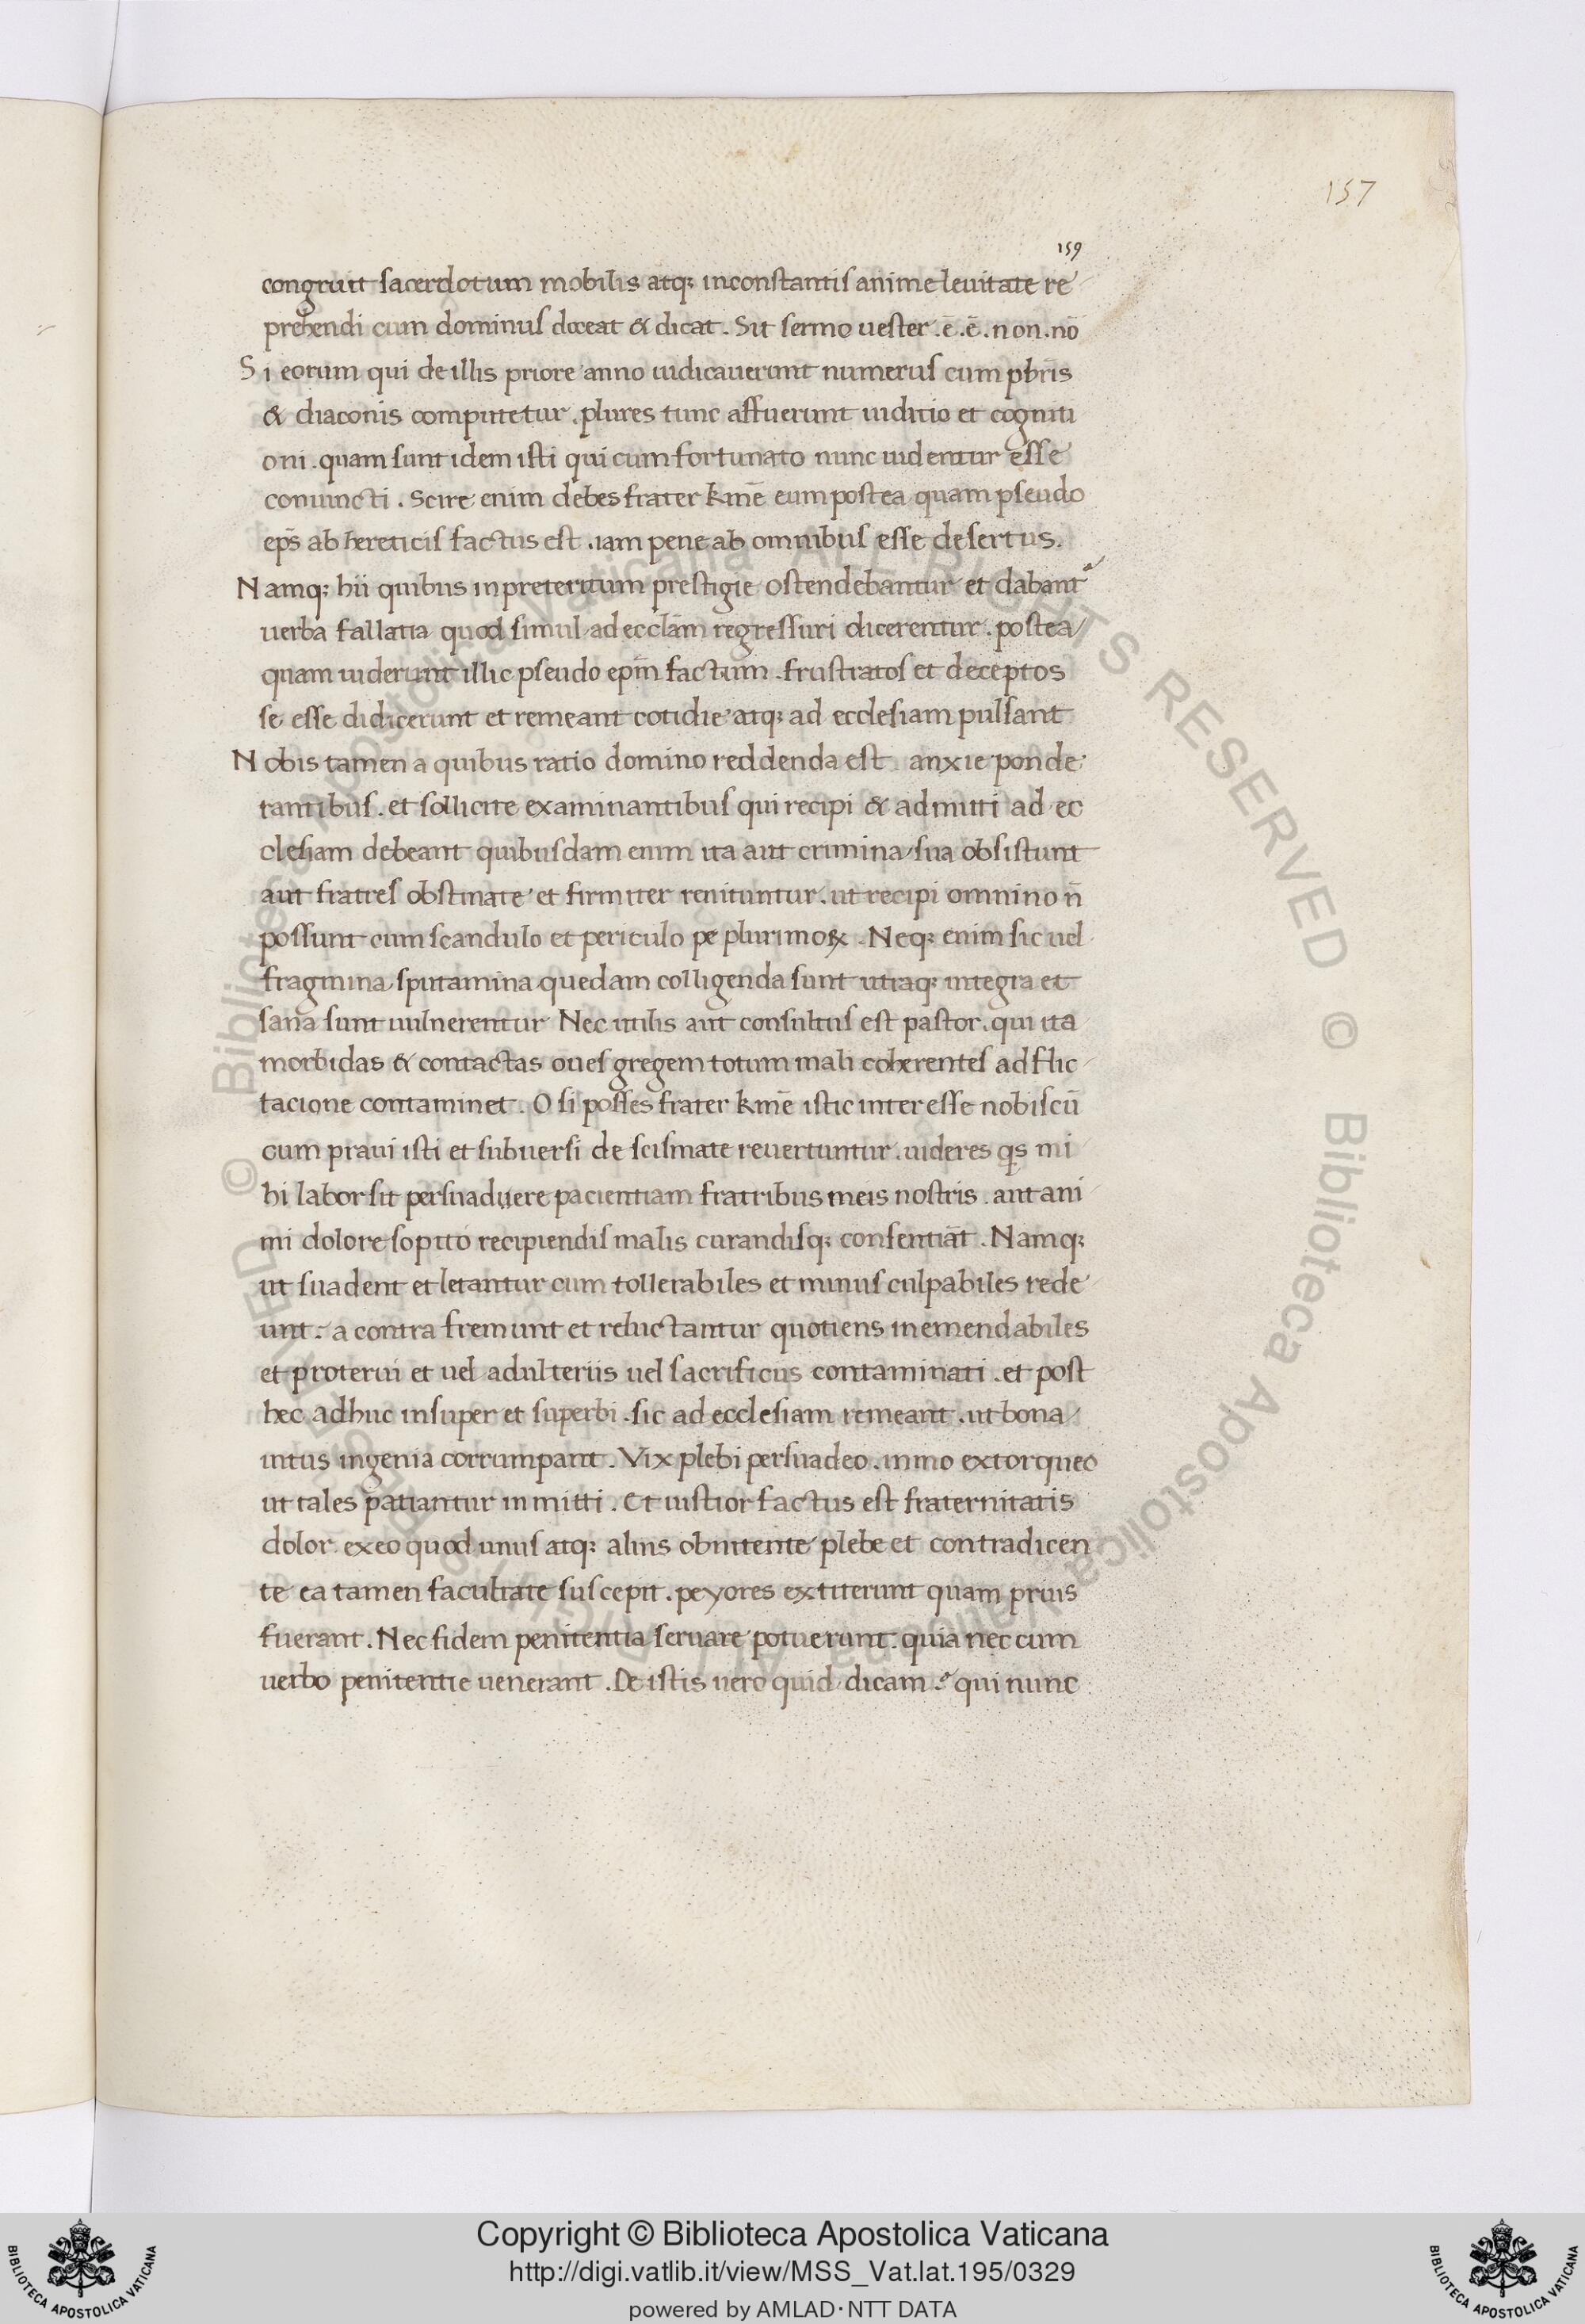 157
159
congruit sacerdotum mobilis atq; inconstantis anime leuitate re
prehendi cum dominus doceat & dicat. Sit sermo uester .ē.ē. non.nō
Si eorum qui de illis priore anno iudicauerunt numerus cum pbr̄is
& diaconis computetur. plures tunc affuerunt iuditio et cogniti
oni. quam sunt idem isti qui cum fortunato nunc uidentur esse
coniuncti. Scire enim debes frater kmē eum postea quam pseudo
ep̄s ab hereticis factus est .iam pene ab omnibus esse desertus.
Namq; hii quibus in preteritum prestigie ostendebantur et dabant᷑
uerba fallatia quod simul ad ecclām regressuri dicerentur. postea
quam uiderunt illic pseudo ep̄m factum. frustratos et deceptos
se esse didicerunt et remeant cotidie atq; ad ecclesiam pulsant
Nobis tamen a quibus ratio domino reddenda est. anxie ponde
rantibus. et sollicite examinantibus qui recipi & admitti ad ec
clesiam debeant quibusdam enim ita aut crimina sua obsistunt
aut fratres obstinate et firmiter renituntur. ut recipi omnino n̄
possunt cum scandulo et periculo pe plurimoꝝ. Neq; enim sic uel
fragmina sputamina quedam colligenda sunt utraq; integra et
sana sunt uulnerentur Nec utilis aut consultus est pastor. qui ita
morbidas & contactas oues gregem totum mali coherentes adflic
tacione contaminet. O si posses frater kmē istic inter esse nobiscū
cum praui isti et subuersi de scismate reuertuntur. uideres qīs mi
hi labor sit persuaduere pacientiam fratribus meis nostris. aut ani
mi dolore sopito recipiendis malis curandisq; consentiāt. Namq;
ut suadent et letantur cum tollerabiles et minus culpabiles rede
unt: a contra fremunt et reluctantur quotiens inemendabiles
et proterui et uel adulteriis uel sacrificiis contaminati. et post
hec adhuc insuper et superbi. sic ad ecclesiam remeant. ut bona
intus ingenia corrumpant. Vix plebi persuadeo. inmo extorqueo
ut tales patiantur inmitti. Et iustior factus est fraternitatis
dolor. ex eo quod unus atq; alius obnitente plebe et contradicen
te ea tamen facultate suscepit. peyores extiterunt quam prius
fuerant. Nec fidem penitentia seruare potuerunt: quia nec cum
uerbo penitentie uenerant. De istis uero quid dicam? qui nunc
Copyright © Biblioteca Apostolica Vaticana
http://digi.vatlib.it/view/MSS_Vat.lat.195/0329
powered by AMLAD · NTT DATA